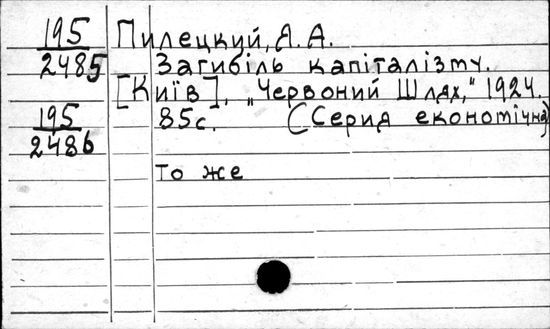 195 Пилецкий, Я. А.
2485 Загибіль капіталізму.
[Київ], „Червоний Шлях," 1924.
195 85с. (Серия економічна)
2486
То же